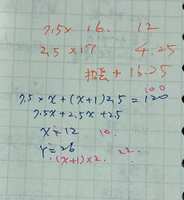 7.5x 16. 12
2,5 x 17 4.25
+ 16.25
100
7.5 x x + (x+1) 2,5 = 120
7.5x + 2.5x + 2.5
x = 12 10.
y = 26
(x+1) x 2. 22.